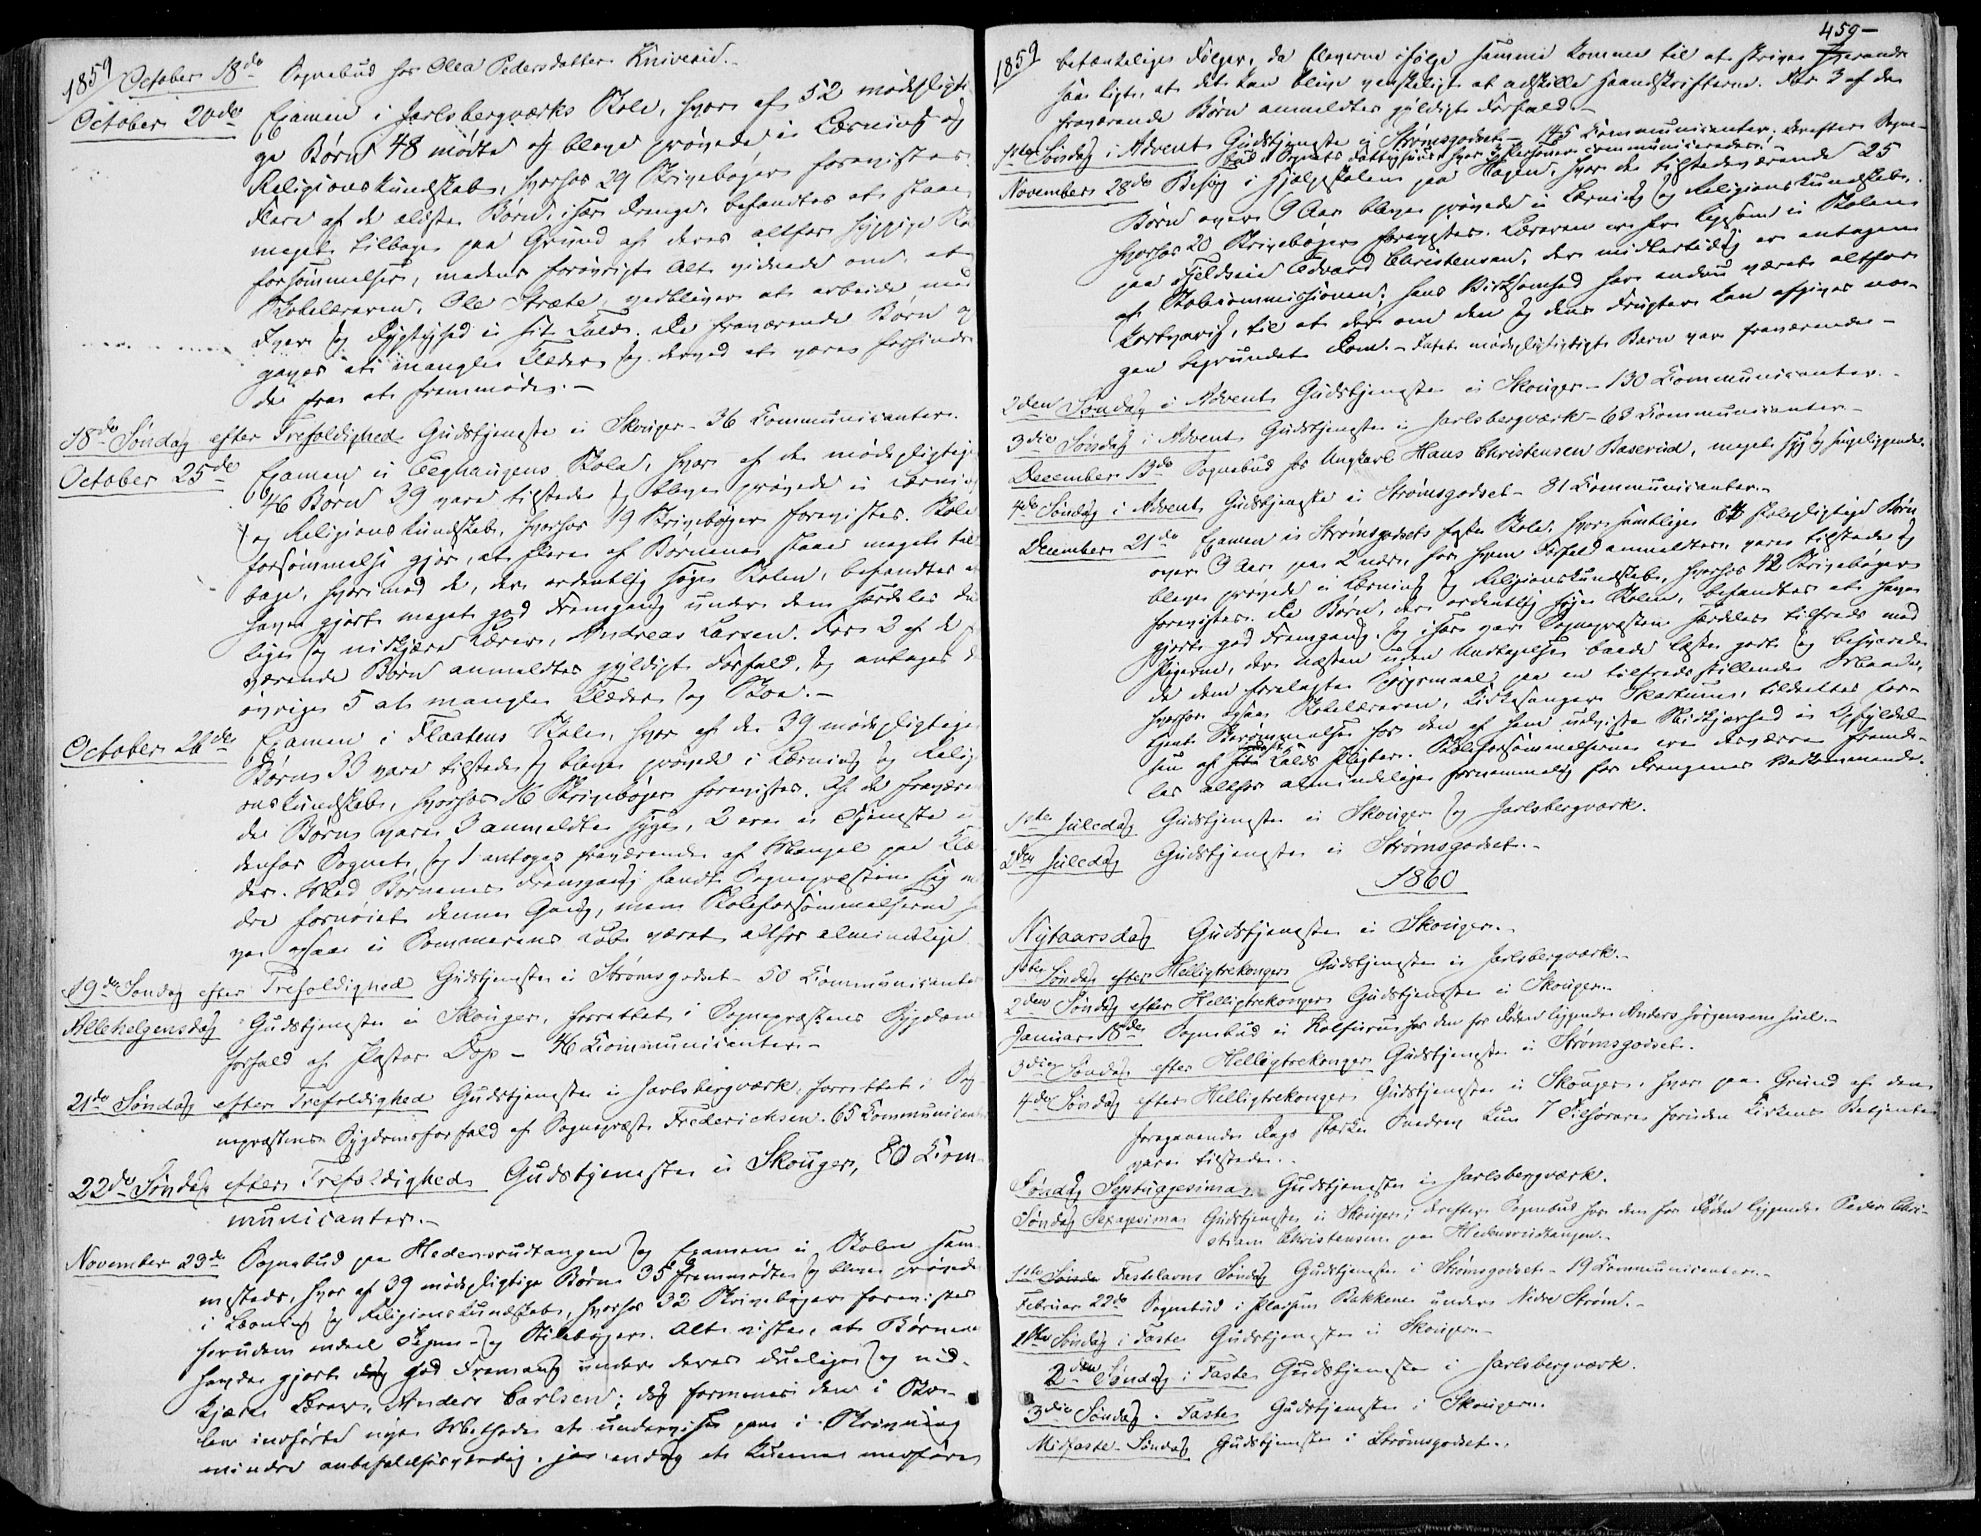 1859 October 18de Sognebud hos Olea Pedersdatter Kniveaas.
October 20de Examen i Jarlsbergværks Skole, hvor af 52 mødepligti-
ge Børn 48 mødte og bleve prøvede i Læsning og
Religionskundskab, hvorhos 29 Skrivebøger forevistes.
Flere af de ældste Børn, især Drenge, befandtes at staae
meget tilbage paa Grund af deres altfor hyppige Sko
forsømmelser, medens forøvrigt Alt vidnede om, at
Skolelæreren, Ole Stræte, vedbliver at arbeide med
Iver og Dygtighed i sit Kald. De fraværende Børn op
gaves at mangle Klæder og derved at være forhindre
de fra at fremmøde.-
18de Søndag efter Trefoldighed Gudstjeneste i Skouger - 36 Communicanter.
October 25de Examen i Eeghaugens Skole, hvor af de mødepligtige
46 Børn 39 vare tilstede og bleve prøvede i Læsning
og Religionskundskab, hvorhos 19 Skrivebøger forevistes. Skole
forsømmelse gjør, at flere af Børnene staae meget til
bage, hvorimod de, der ordentlig søge Skolen, befandtes at
have gjort meget god Fremgang under dem særdeles due
lige og nidkjære Lærer, Andreas Larsen. For 2 af de fra
værende Børn anmeldtes gyldigt Forfald, og antages de
øvrige 5 at mangle Klæder og Skoe.-
October 26de Examen i Flaatens Skole, hvor af de 39 mødepligtige
Børn 33 vare tilstede og bleve prøvede i Læsning og Religi
onskundskab, hvorhos 16 Skrivebøger forevistes. Af de fravære
de Børn vare 3 anmeldte syge, 2 ere i Tjeneste u
denfor Sognet, og 1 antoges fraværende af Mangel paa Klæ
der. Med Børnenes Fremgang fandt Sognepræsten sig min
dre fornøiet denne Gang, men Skoleforsømmelserne ha
ve ogsaa i Sommerens Løb været altfor almindelige.
19de Søndag efter Trefoldighed Gudstjeneste i Strømsgodset - 50 Communicante
Allehelgensdag Gudstjeneste i Skouger, forrettet i Sognepræstens Sygdoms
forfald af Pastor Dop - 46 Communicanter.-
21de Søndag efter Trefoldighed Gudstjeneste i Jarlsbergværk, forrettet i Sog-
nepræstens Sygdomsforfald af Sognepræst Frederichsen. 65 Communicant
22de Søndag efter Trefoldighed Gudstjeneste i Skouger, 80 Com-
municanter.-
November 23de Sognebud paa Hedensrudtangen og Examen i Skolen sam-
mesteds, hvor af 39 mødepligtige Børn 35 fremmødte og bleve prøvede
i Læsning og Religionskundskab, hvorhos 32 Skrivebøger forevistes
foruden endeel Regne- og Stilebøger. Alt viste, at Børnene
havde gjort god Fremgang under deres duelige og nid-
kjære Lærer Anders Carlsen; dog formenes den i Sko-
len indførte nye Methode at undervise paa i Skrivning
mindre anbefalelsesværdig, ja endog at kunne medføre
459-
1859 betænkelige Følger, da Eleverne ifølge samme komme til at skrive
saa ligt, at det kan blive vanskeligt at adskille Haandskrifterne. For 3 af de
fraværende Børn anmeldtes gyldigt Forfald.-
1ste Søndag i Advent Gudstjeneste i Strømsgodset - 145 Communicanter. Derefter Sogne-
bud i Sognets Fattighuus, hvor 3 Personer communicerede.-
November 28de Besøg i Hjelpeskolen paa Hagen, hvor de tilstedeværende 25
Børn over 9 Aar bleve prøvede i Læsning og Religionskundskab,
hvorhos 20 Skrivebøger forevistes. Læreren er her ligesom i Skolen
paa Fjeldseie Edvard Christensen, der midlertidig er antagen
af Skolecommissionen; hans Virksomhed har endnu været altfor
kortvarig, til at der om den og dens Frugter kan afgives no-
gen begrundet Dom.- Intet mødepligtigt Barn var fraværende.-
2den Søndag i Advent Gudstjeneste i Skouger - 130 Communicanter.-
3die Søndag i Advent Gudstjeneste i Jarlsbergværk - 63 Communicanter.-
December 13de Sognebud hos Ungkarl Hans Christensen Baserud, meget syg og sengeliggende.
4de Søndag i Advent Gudstjeneste i Strømsgodset - 81 Communicanter.-
December 21de Examen i Strømsgodsets faste Skole, hvor samtlige 64 skolepligtige Børn
over 9 Aar paa 2 nær, for hvem Forfald anmeldtes, vare tilstede og
bleve prøvede i Læsning og Religionskundskab, hvorhos 42 Skrivebøger
forevistes. De Børn, der ordentlig søge Skolen, befandtes at have
gjort god Fremgang, og især var Sognepræsten særdeles tilfreds med
Pigerne, der næsten uden Undtagelse baade læste godt og besvarede
de dem forelagte Spørgsmaal paa en tilfredsstillende Maade,
hvorfor ogsaa Skolelæreren, Kirkesanger Skartum, tildeeltes for-
tjent Berømmelse for den af ham udviste Nidkjærhed i Opfyldel-
sen af sit Kalds Pligter. Skoleforsømmelserne ere desværre frem-
les altfor almindelige fornemmelig for Drengenes Vedkommende.
1ste Juledag Gudstjeneste i Skouger og Jarlsbergværk.
2den Juledag Gudstjeneste i Strømsgodset.-
1860
Nytaarsdag Gudstjeneste i Skouger.-
1ste Søndag efter Helligtrekonger Gudstjeneste i Jarlsbergværk.-
2den Søndag efter Helligtrekonger Gudstjeneste i Skouger.-
Januar 18de Sognebud i Kolfurus hos den for Døden liggende Anders Jørgensen Huel.-
3die Søndag efter Helligtrekonger Gudstjeneste i Strømsgodset.
4de Søndag efter Helligtrekonger Gudstjeneste i Skouger, hvor paa Grund af den
foregaaende Dags stærke Snedrev kun 7 Tilhørere foruden Kirkens Betjente
vare tilstede.-
Søndag Septuagesima Gudstjeneste i Jarlsbergværk.
Søndag Sexagesima Gudstjeneste i Skouger; derefter Sognebud hos den for Døden liggende Peder Chri-
stian Christensen paa Hedensrudtangen.-
Fastelavns Søndag Gudstjeneste i Strømsgodset - 19 Communicanter.-
Februar 22de Sognebud i Pladsen Bakkene under Nedre Strøm.-
1ste Søndag i Faste Gudstjeneste i Skouger.-
2den Søndag i Faste Gudstjeneste i Jarlsbergværk.
3die Søndag i Faste Gudstjeneste i Skouger.
Midfaste-Søndag Gudstjeneste i Strømsgodset.